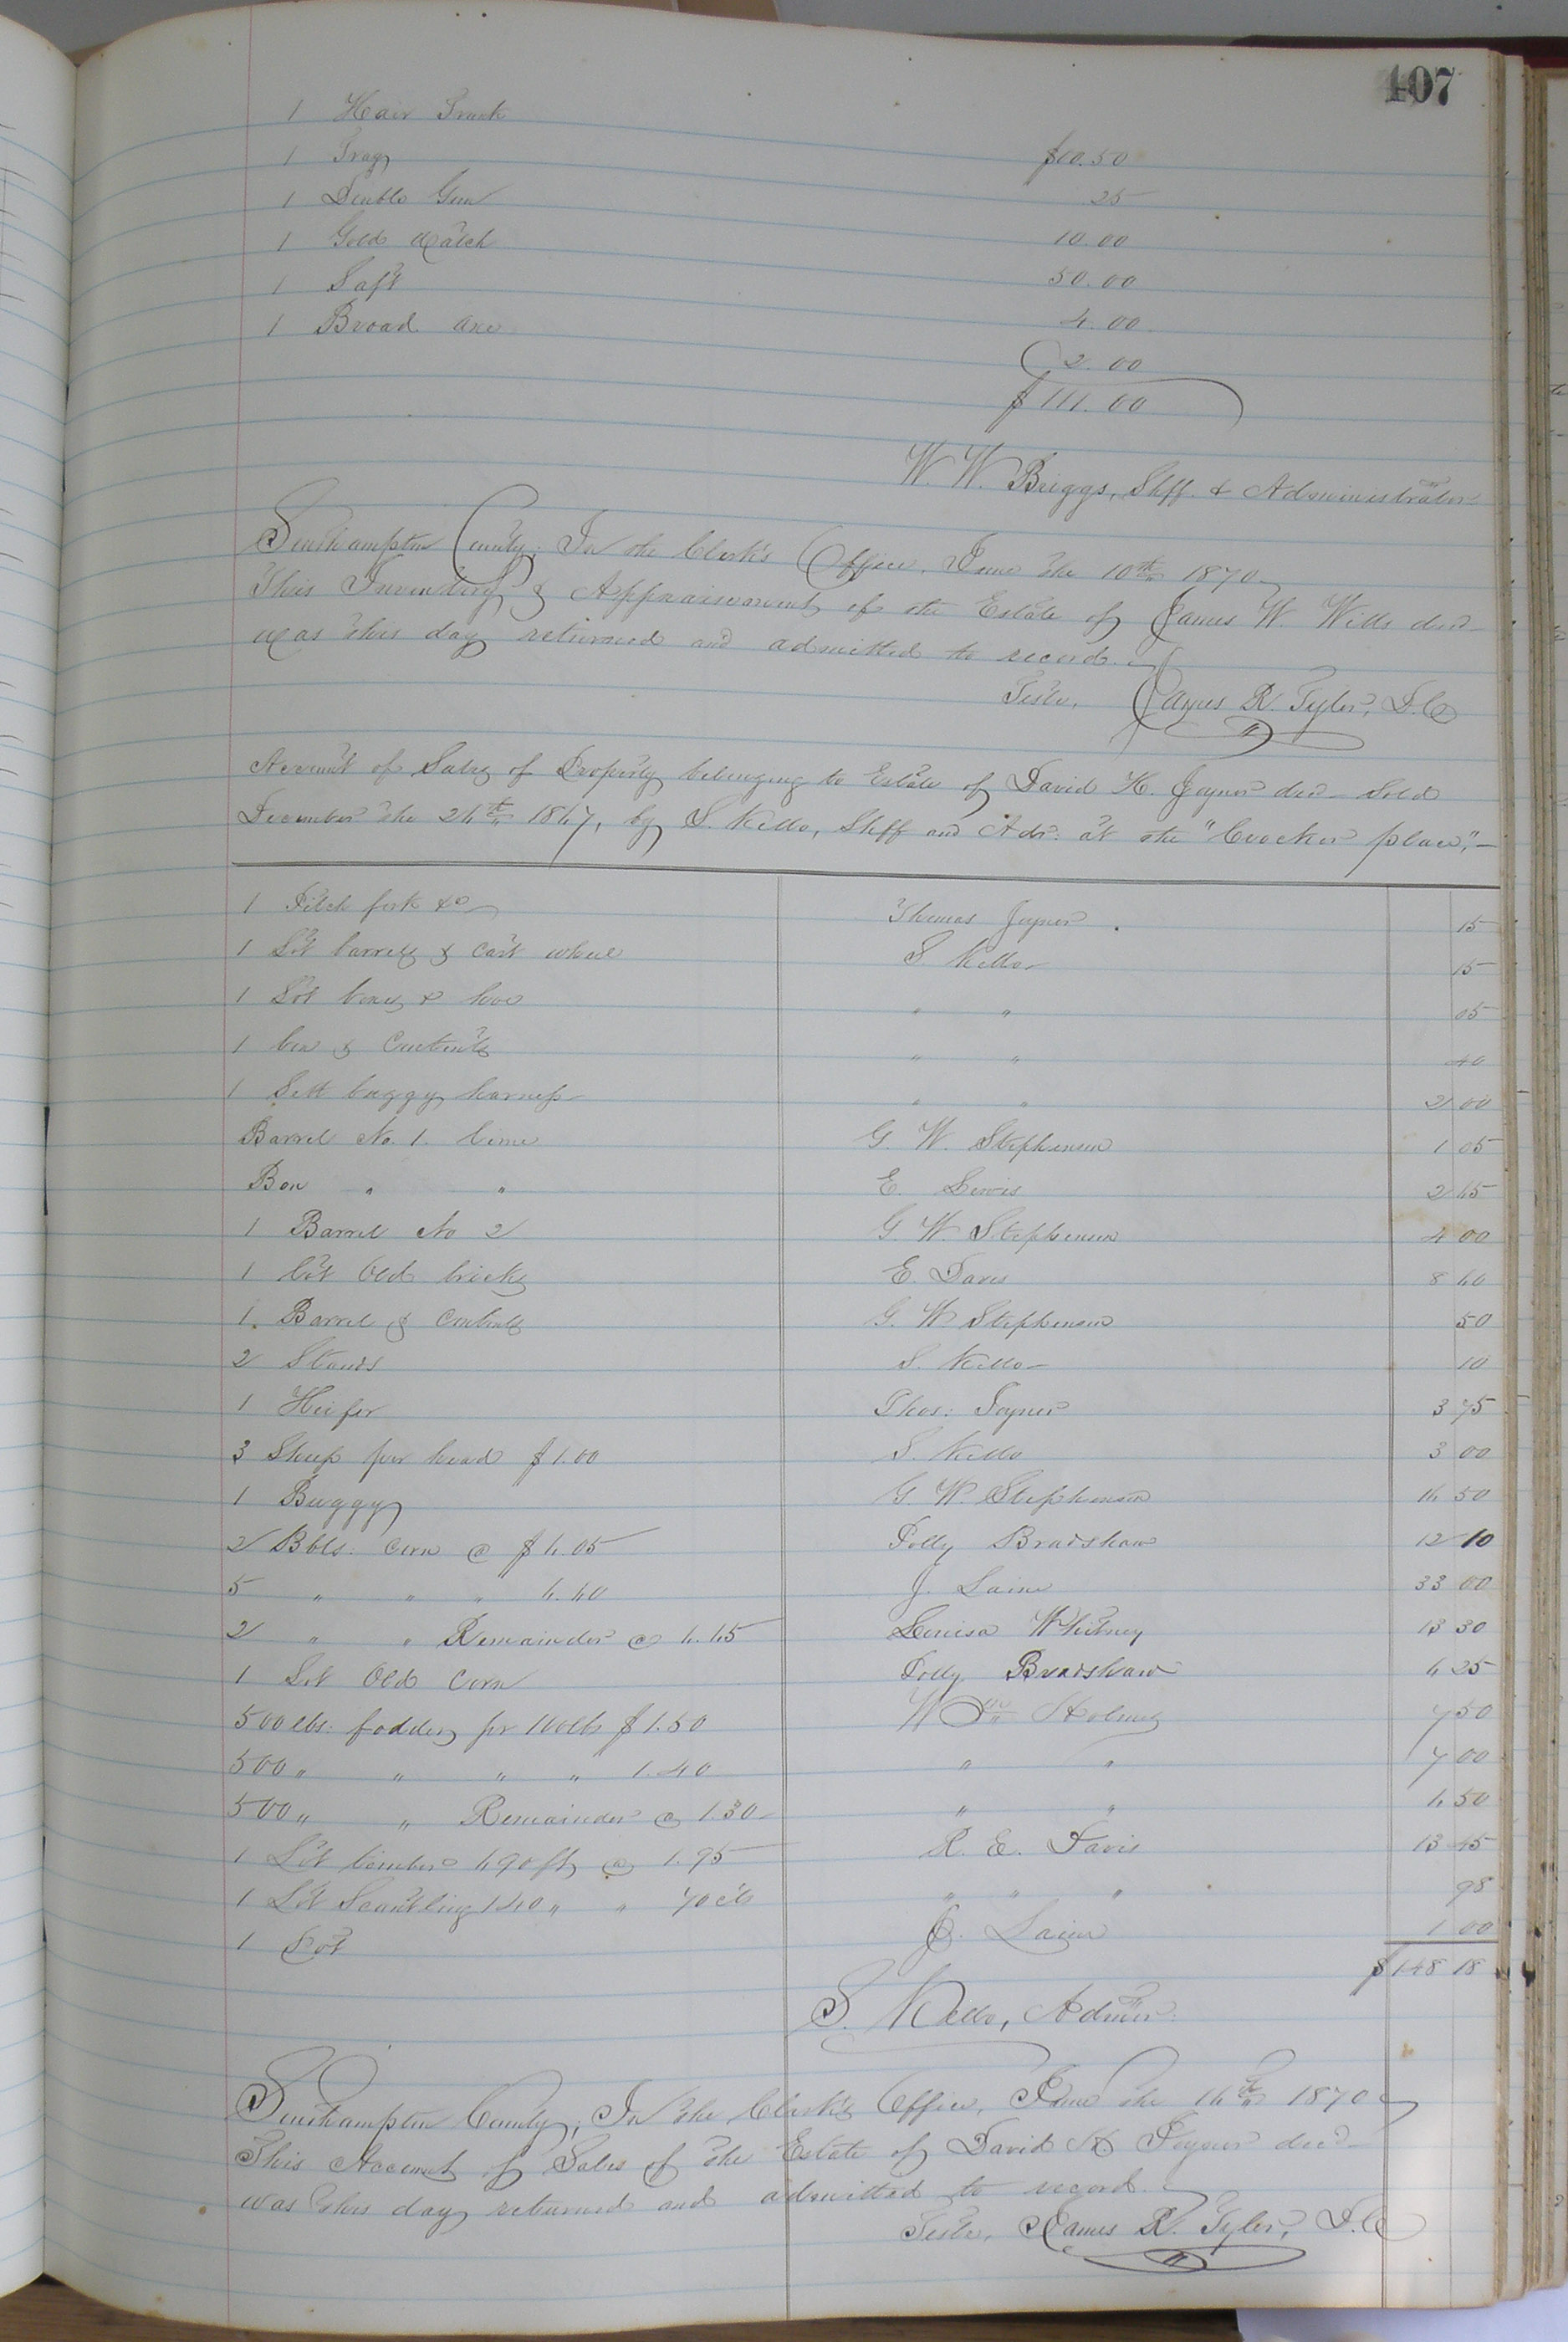 107
1 Hair Trunk
1 Tray $10.50
1 Double Gun 25
1 Gold Watch 10.00
1 Saft 50.00
1 Broad axe 4.00
2.00
$111.00
W. W. Briggs, Shff. & Administrator
Southampton County; In the Clerk's Office, June the 10th 1870
This Inventory & Appraisement of the Estate of James W. Wills decd
was this day returned and admitted to record.
Teste, James R. Tyler, D.C
Account of Sales of Property belonging to Estate of David H. Joyner decd Sold
December the 26th 1867, by S. Kello, Shff and Adr. at the "Crocker place,"
1 Pitch fork &c Thomas Joyner 15
1 Lot barrels & cart wheel S. Kello 15
1 Lot boxes & hoe " " 05
1 box & Contents " " 40
1 Sett buggy harness " " 2 00
Barrel No. 1. lime G. W. Stephenson 1 05
Box " " E. Lewis 2 65
1 Barrel No 2 G. W. Stephenson 4 00
1 lot Old bricks E. Davis 8 60
1. Barrel & Contents G. W Stephenson 50
2 Stands S. Kello 10
1 Heifer Thos: Joyner 3 75
3 Sheep per head $1.00 S. Kello 3 00
1 Buggy G. W. Stephenson 16 50
2 Bbls. corn @ $6.05 Polly Bradshaw 12 10
5 " " " 6.60 J. Laine 33 00
2 " " Remainder @ 6.65 Louisa Whitney 13 30
1 Lot Old Corn Polly Bradshaw 6 25
500 lbs: fodder pr 100lbs $1.50 Wm Holmes 7 50
500 " " " " 1.40 " " 7 00
500 " " Remainder @ 1.30 " " 6 50
1 Lot timber 690 ft @ 1.95 R. E. Davis 13 45
1 Lot Scantling 140 " " 70 cts " " " 98
1 Lot J. Laine 1 00
$148 18
S. Kello, Admr.
Southampton County; In the Clerk's Office, June the 16th 1870
This Account of Sales of the Estate of David H Joyner decd
was this day returned and admitted to record.
Teste, James R. Tyler, D.C